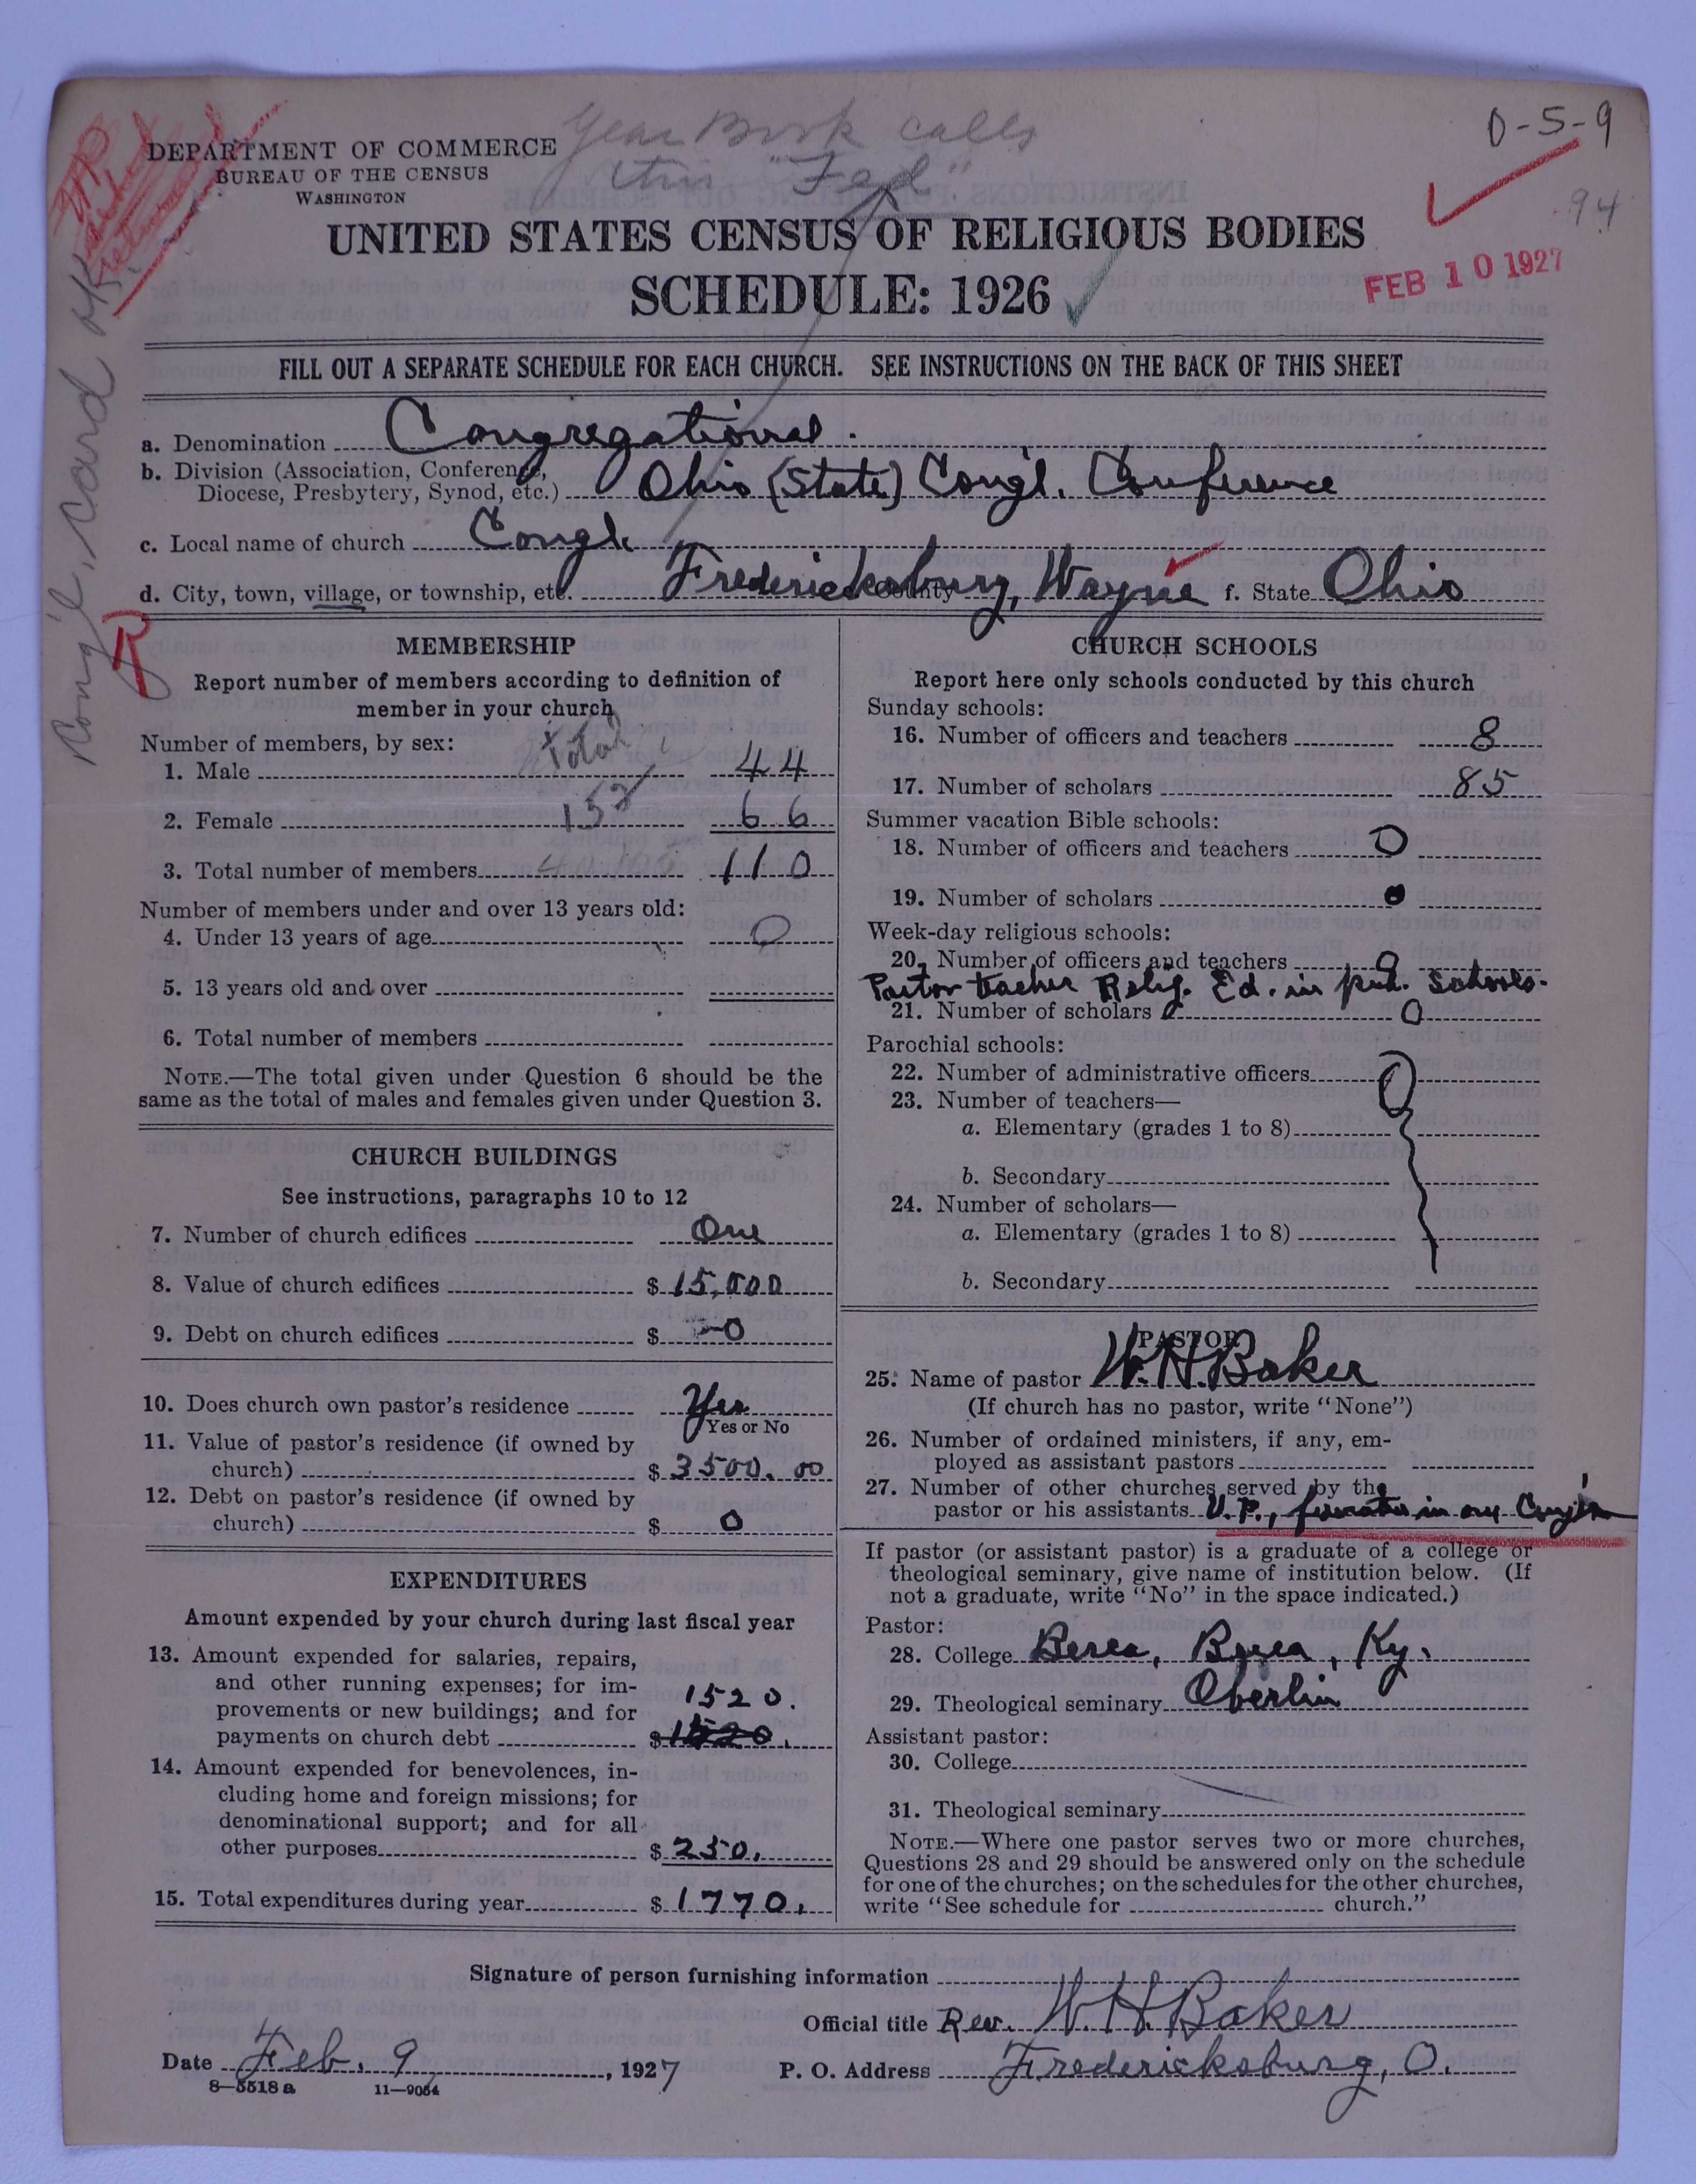 0-5-9
94
Year Book calls
this "Fed"
DEPARTMENT OF COMMERCE
BUREAU OF THE CENSUS
WASHINGTON
UNITED STATES CENSUS OF RELIGIOUS BODIES
SCHEDULE: 1926
FEB 10 1927
Cong'l, Card OK
FILL OUT A SEPARATE SCHEDULE FOR EACH CHURCH. SEE INSTRUCTIONS ON THE BACK OF THIS SHEET
a. Denomination Congregational.
b. Division (Association, Conference,
Diocese, Presbytery, Synod, etc.) Ohio (State) Cong'l. Conference
c. Local name of church Congl.
d. City, town, village, or township, etc. Fredericksburg, County Wayne f. State Ohio
R
MEMBERSHIP
Report number of members according to definition of
member in your church
Total
Number of members, by sex:
1. Male 44
152
2. Female 66
3. Total number of members 110
Number of members under and over 13 years old:
4. Under 13 years of age 0
5. 13 years old and over
6. Total number of members
NOTE.—The total given under Question 6 should be the
same as the total of males and females given under Question 3.
CHURCH BUILDINGS
See instructions, paragraphs 10 to 12
7. Number of church edifices One
8. Value of church edifices $ 15,000
9. Debt on church edifices $ 0
10. Does church own pastor's residence Yes
Yes or No
11. Value of pastor's residence (if owned by
church) $ 3500.00
12. Debt on pastor's residence (if owned by
church) $ 0
EXPENDITURES
Amount expended by your church during last fiscal year
13. Amount expended for salaries, repairs,
and other running expenses; for im-
provements or new buildings; and for 1520.
payments on church debt $ 1520.
14. Amount expended for benevolences, in-
cluding home and foreign missions; for
denominational support; and for all
other purposes $ 250.
15. Total expenditures during year $ 1770.
CHURCH SCHOOLS
Report here only schools conducted by this church
Sunday schools:
16. Number of officers and teachers 8
17. Number of scholars 85
Summer vacation Bible schools:
18. Number of officers and teachers 0
19. Number of scholars 0
Week-day religious schools:
20. Number of officers and teachers 0
Pastor teacher Relig. Ed. in pub. Schools.
21. Number of scholars 0
Parochial schools:
22. Number of administrative officers 0
23. Number of teachers—
a. Elementary (grades 1 to 8)
b. Secondary
24. Number of scholars—
a. Elementary (grades 1 to 8)
b. Secondary
PASTOR
25. Name of pastor W. H. Baker
(If church has no pastor, write "None")
26. Number of ordained ministers, if any, em-
ployed as assistant pastors
27. Number of other churches served by the
pastor or his assistants U. P., in our Cong'n
If pastor (or assistant pastor) is a graduate of a college or
theological seminary, give name of institution below. (If
not a graduate, write "No" in the space indicated.)
Pastor:
28. College Berea, Berea, Ky.
29. Theological seminary Oberlin
Assistant pastor:
30. College
31. Theological seminary
NOTE.—Where one pastor serves two or more churches,
Questions 28 and 29 should be answered only on the schedule
for one of the churches; on the schedules for the other churches,
write "See schedule for church."
Signature of person furnishing information
Official title Rev. W. H. Baker
Date Feb. 9, 1927 P. O. Address Fredericksburg, O.
8—5518 a 11—9054